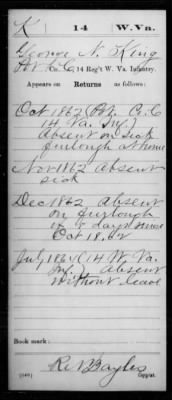 K 14 W. Va.
George N. King
Co. C, 14 Reg't W. Va. Infantry.
Appears on Returns as follows:
Oct 1862 (Co. C
14 Va. Inf.)
Absent on sick
furlough at home
Nov 1862 Absent
sick
Dec 1862 Absent
on furlough
of days since
Oct 18, 62
July 1864 (14 W. Va.
Inf.) Absent
without leave
Book mark:
(546)
R. V. Bayles
Copyist.